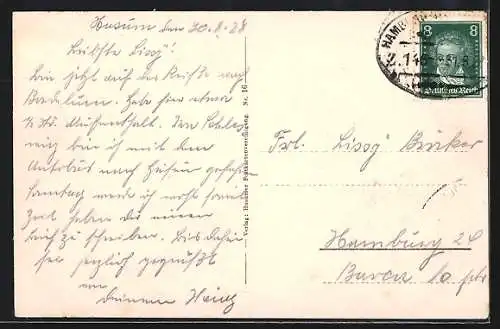 Husum den 30.8.28
Liebste Lissy!
Bin jetzt auf der Reise nach
Habe hier etwa
½ Std. Aufenthalt. Von Schles
wig bin ich mit dem
Autobus nach Husum gefahren
Samstag werde ich wohl
Zeit haben dir einen
Brief zu schreiben. Bis dahin
sei herzlich gegrüßt
von
deinem Heinz
Verlag: Husumer Postkartenvereinigung. Nr. 16
HAMB
8 8
Deutsches Reich
Frl. Lissy Brüker
Hamburg 24